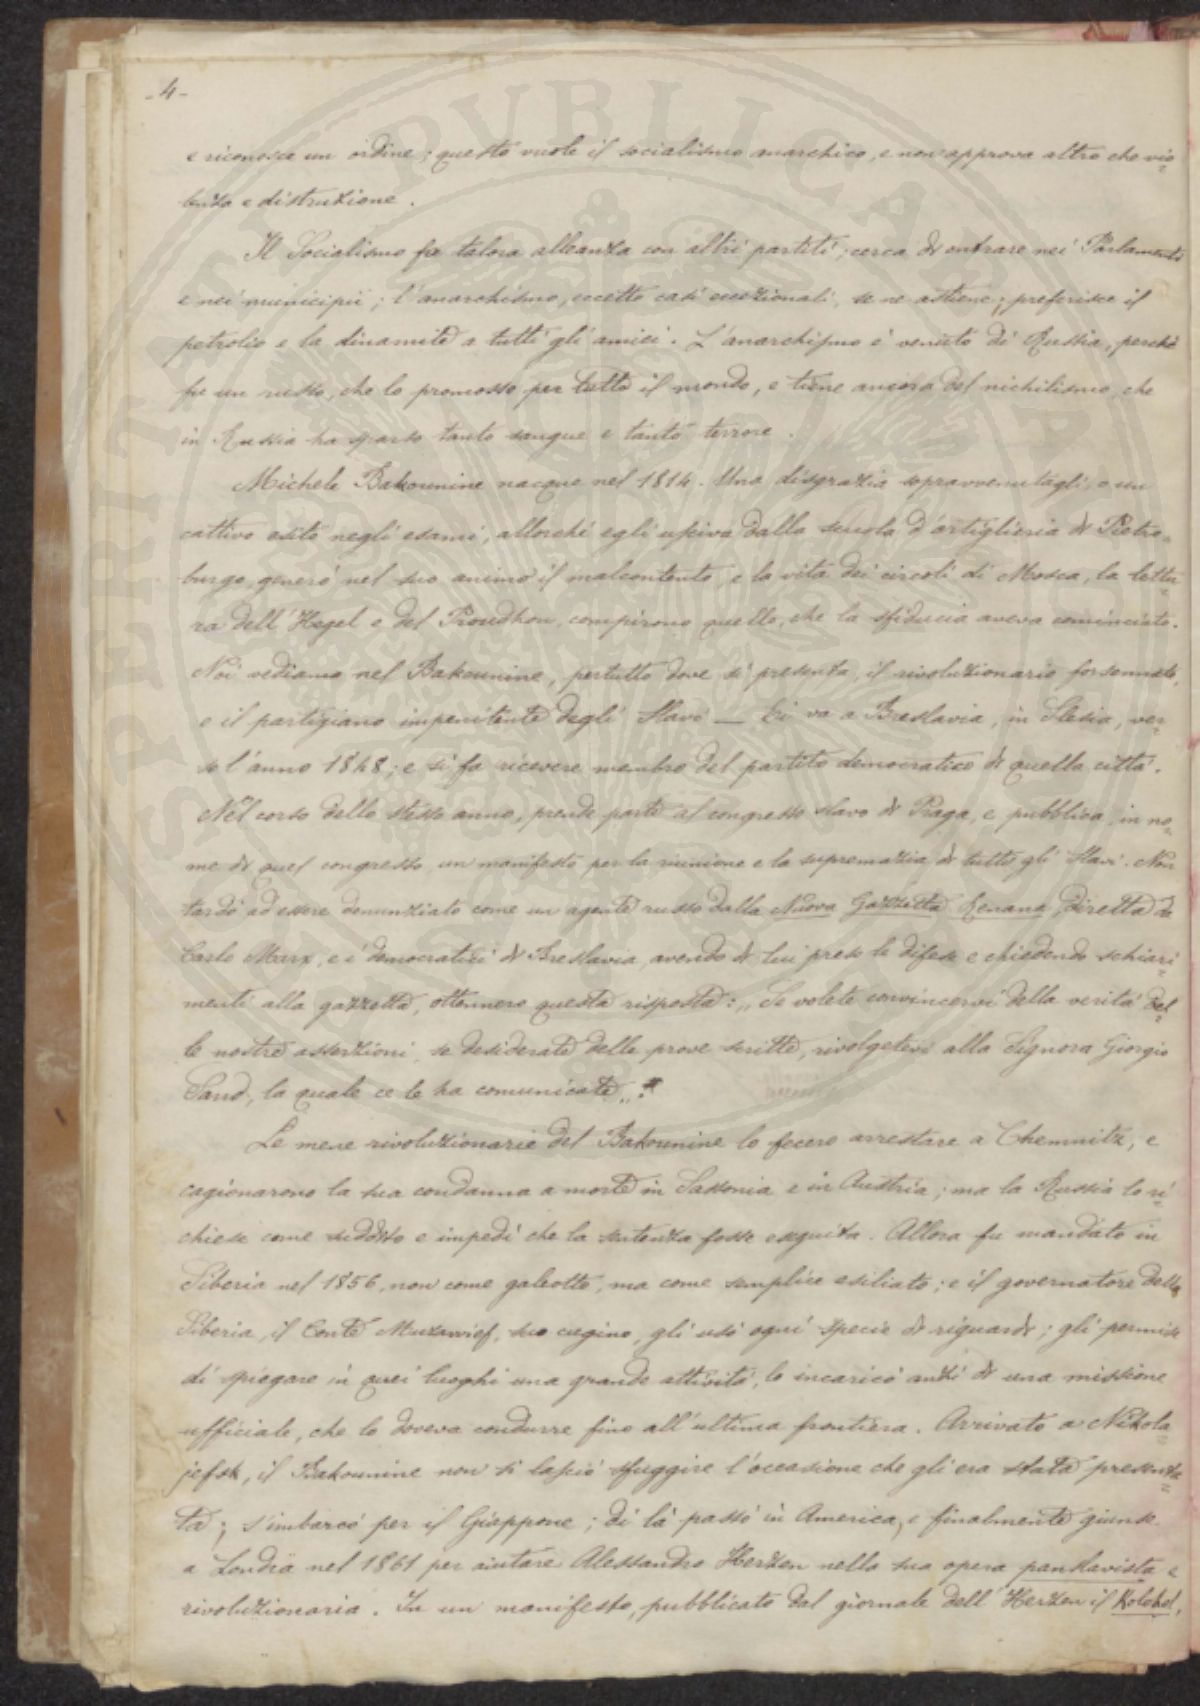 -4-
e riconosce un ordine; questo vuole il socialismo anarchico, e non approva altro che vio=
lenza e distruzione.
Il Socialismo fa talora alleanza con altri partiti; cerca di entrare nei Parlamenti
e nei municipii; l'anarchismo, eccetto casi eccezionali, se ne astiene; preferisce il
petrolio e la dinamite a tutti gli amici. L'anarchismo è venuto di Russia, perchè
fu un russo, che lo promosse per tutto il mondo, e tiene ancora del nichilismo, che
in Russia ha sparso tanto sangue e tanto terrore.
Michele Bakounine nacque nel 1814. Una disgrazia sopravvenutagli, o un
cattivo esito negli esami, allorchè egli usciva dalla scuola d'artiglieria di Pietro=
burgo, generò nel suo animo il malcontento, e la vita dei circoli di Mosca, la lettu=
ra dell'Hegel e del Proudhon, compirono quello, che la sfiducia aveva cominciato.
Noi vediamo nel Bakounine, pertutto dove si presenta, il rivoluzionario forsennato,
e il partigiano impenitente degli Slavi — Ei va a Breslavia, in Slesia, ver=
so l'anno 1848; e si fa ricevere membro del partito democratico di quella città.
Nel corso dello stesso anno, prende parte al congresso slavo di Praga, e pubblica, in no=
me di quel congresso un manifesto per la riunione e la supremazia di tutti gli Slavi. Non
tardò ad essere denunziato come un agente russo dalla Nuova Gazzetta Renana, diretta da
Carlo Marx, e i democratici di Breslavia, avendo di lui preso le difese e chiedendo schiari=
menti alla gazzetta, ottennero questa risposta: „Se volete convincervi della verità del=
le nostre asserzioni, se desiderate delle prove scritte, rivolgetevi alla Signora Giorgio
Sand, la quale ce le ha comunicate„.
Le mene rivoluzionarie del Bakounine lo fecero arrestare a Chemnitz, e
cagionarono la sua condanna a morte in Sassonia e in Austria; ma la Russia lo ri=
chiese come suddito e impedì che la sentenza fosse eseguita. Allora fu mandato in
Siberia nel 1856, non come galeotto, ma come semplice esiliato; e il governatore della
Siberia, il Conte Murawief, suo cugino, gli usò ogni specie di riguardi; gli permise
di spiegare in quei luoghi una grande attività, lo incaricò anzi di una missione
ufficiale, che lo doveva condurre fino all'ultima frontiera. Arrivato a Nikola=
jefsk, il Bakounine non si lasciò sfuggire l'occasione che gli era stata presenta=
ta; s'imbarcò per il Giappone; di là passò in America, e finalmente giunse
a Londra nel 1861 per aiutare Alessandro Herzen nella sua opera panslavista e
rivoluzionaria. In un manifesto, pubblicato dal giornale dell'Herzen il Kolokol,